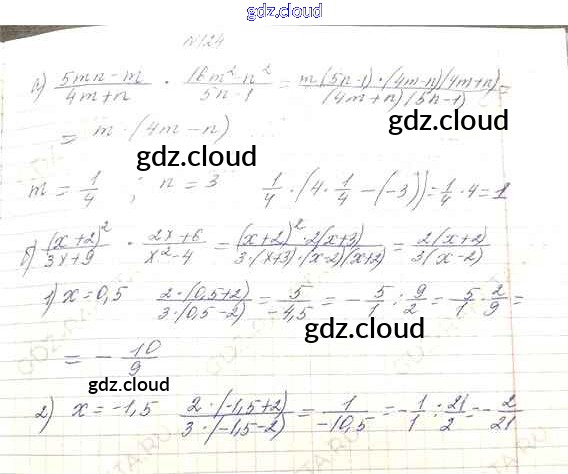 gdz.cloud
N 124
а) (5mn - m)/(4m + n) · (16m² - n²)/(5n - 1) = (m(5n-1)·(4m-n)(4m+n))/((4m+n)(5n-1)) =
= m·(4m - n)
gdz.cloud gdz.cloud
m = 1/4 ; n = 3 1/4·(4·1/4 - (-3)) = 1/4·4 = 1
gdz.cloud
б) (x+2)²/(3x+9) · (2x+6)/(x²-4) = ((x+2)²·2(x+3))/(3·(x+3)·(x-2)(x+2)) = 2(x+2)/3(x-2)
1) x = 0,5 (2·(0,5+2))/(3·(0,5-2)) = 5/(-4,5) = - 5/1 : 9/2 = - 5/1 · 2/9 =
gdz.cloud
= - 10/9
gdz.cloud
2) x = -1,5 (2·(-1,5+2))/(3·(-1,5-2)) = 1/(-10,5) = - 1/1 : 21/2 = - 2/21
gdz.cloud